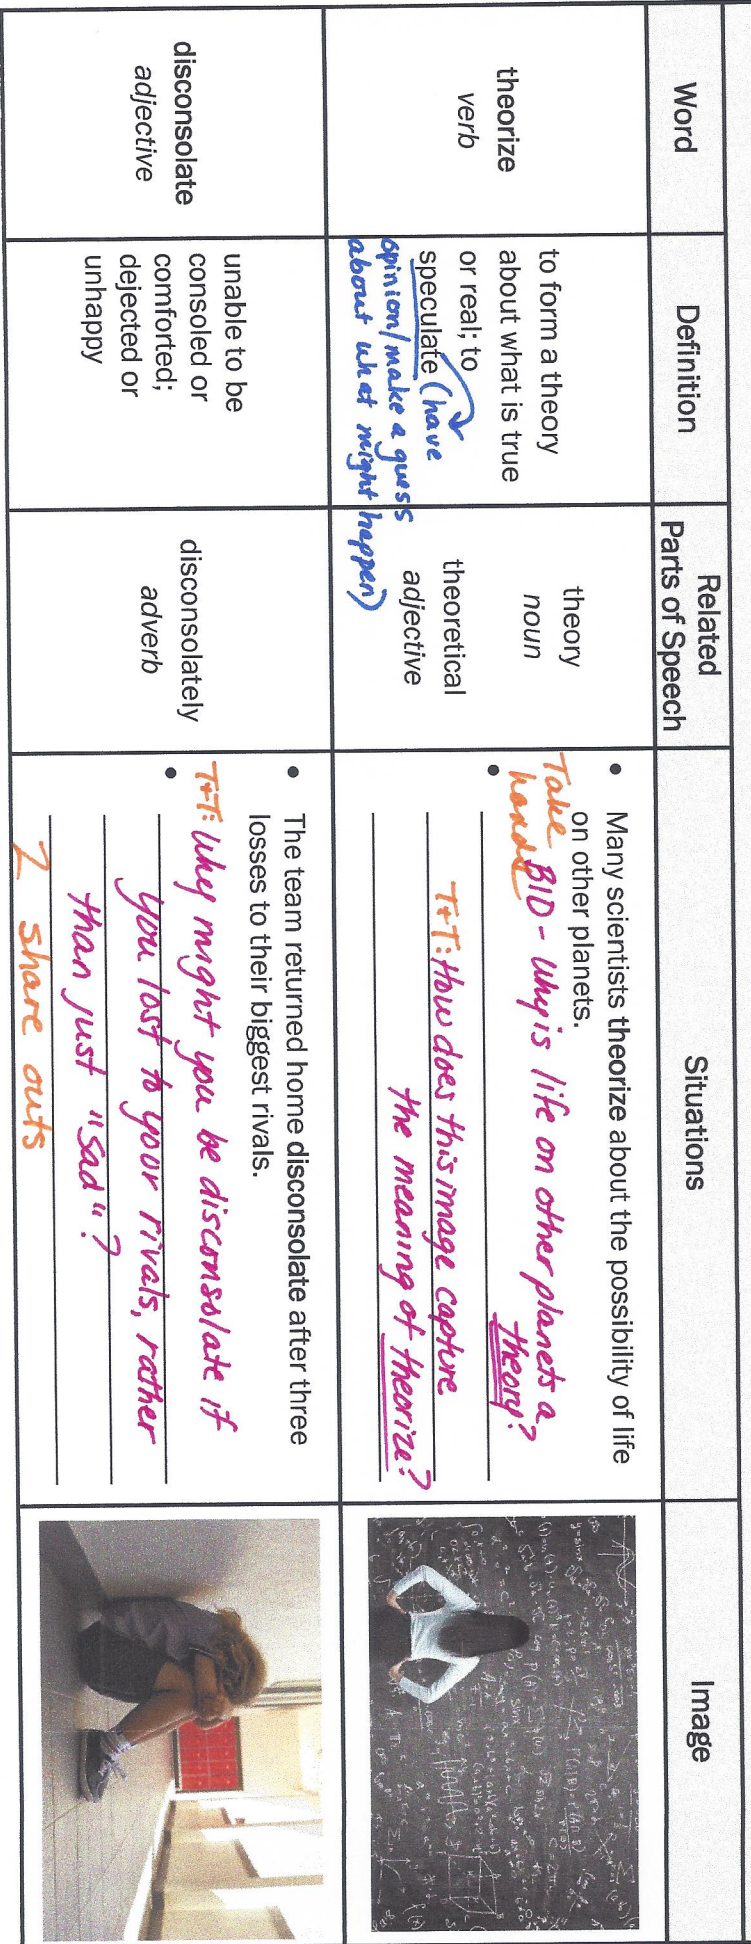 Word
Definition
Related
Parts of Speech
Situations
Image
theorize
verb
to form a theory
about what is true
or real; to
speculate (have
opinion/make a guess
about what might happen)
theory
noun
theoretical
adjective
• Many scientists theorize about the possibility of life
on other planets.
Take
hands
• BID - Why is life on other planets a
theory?
T+T: How does this image capture
the meaning of theorize?
disconsolate
adjective
unable to be
consoled or
comforted;
dejected or
unhappy
disconsolately
adverb
• The team returned home disconsolate after three
losses to their biggest rivals.
• T+T: Why might you be disconsolate if
you lost to your rivals, rather
than just "sad"?
2 share outs